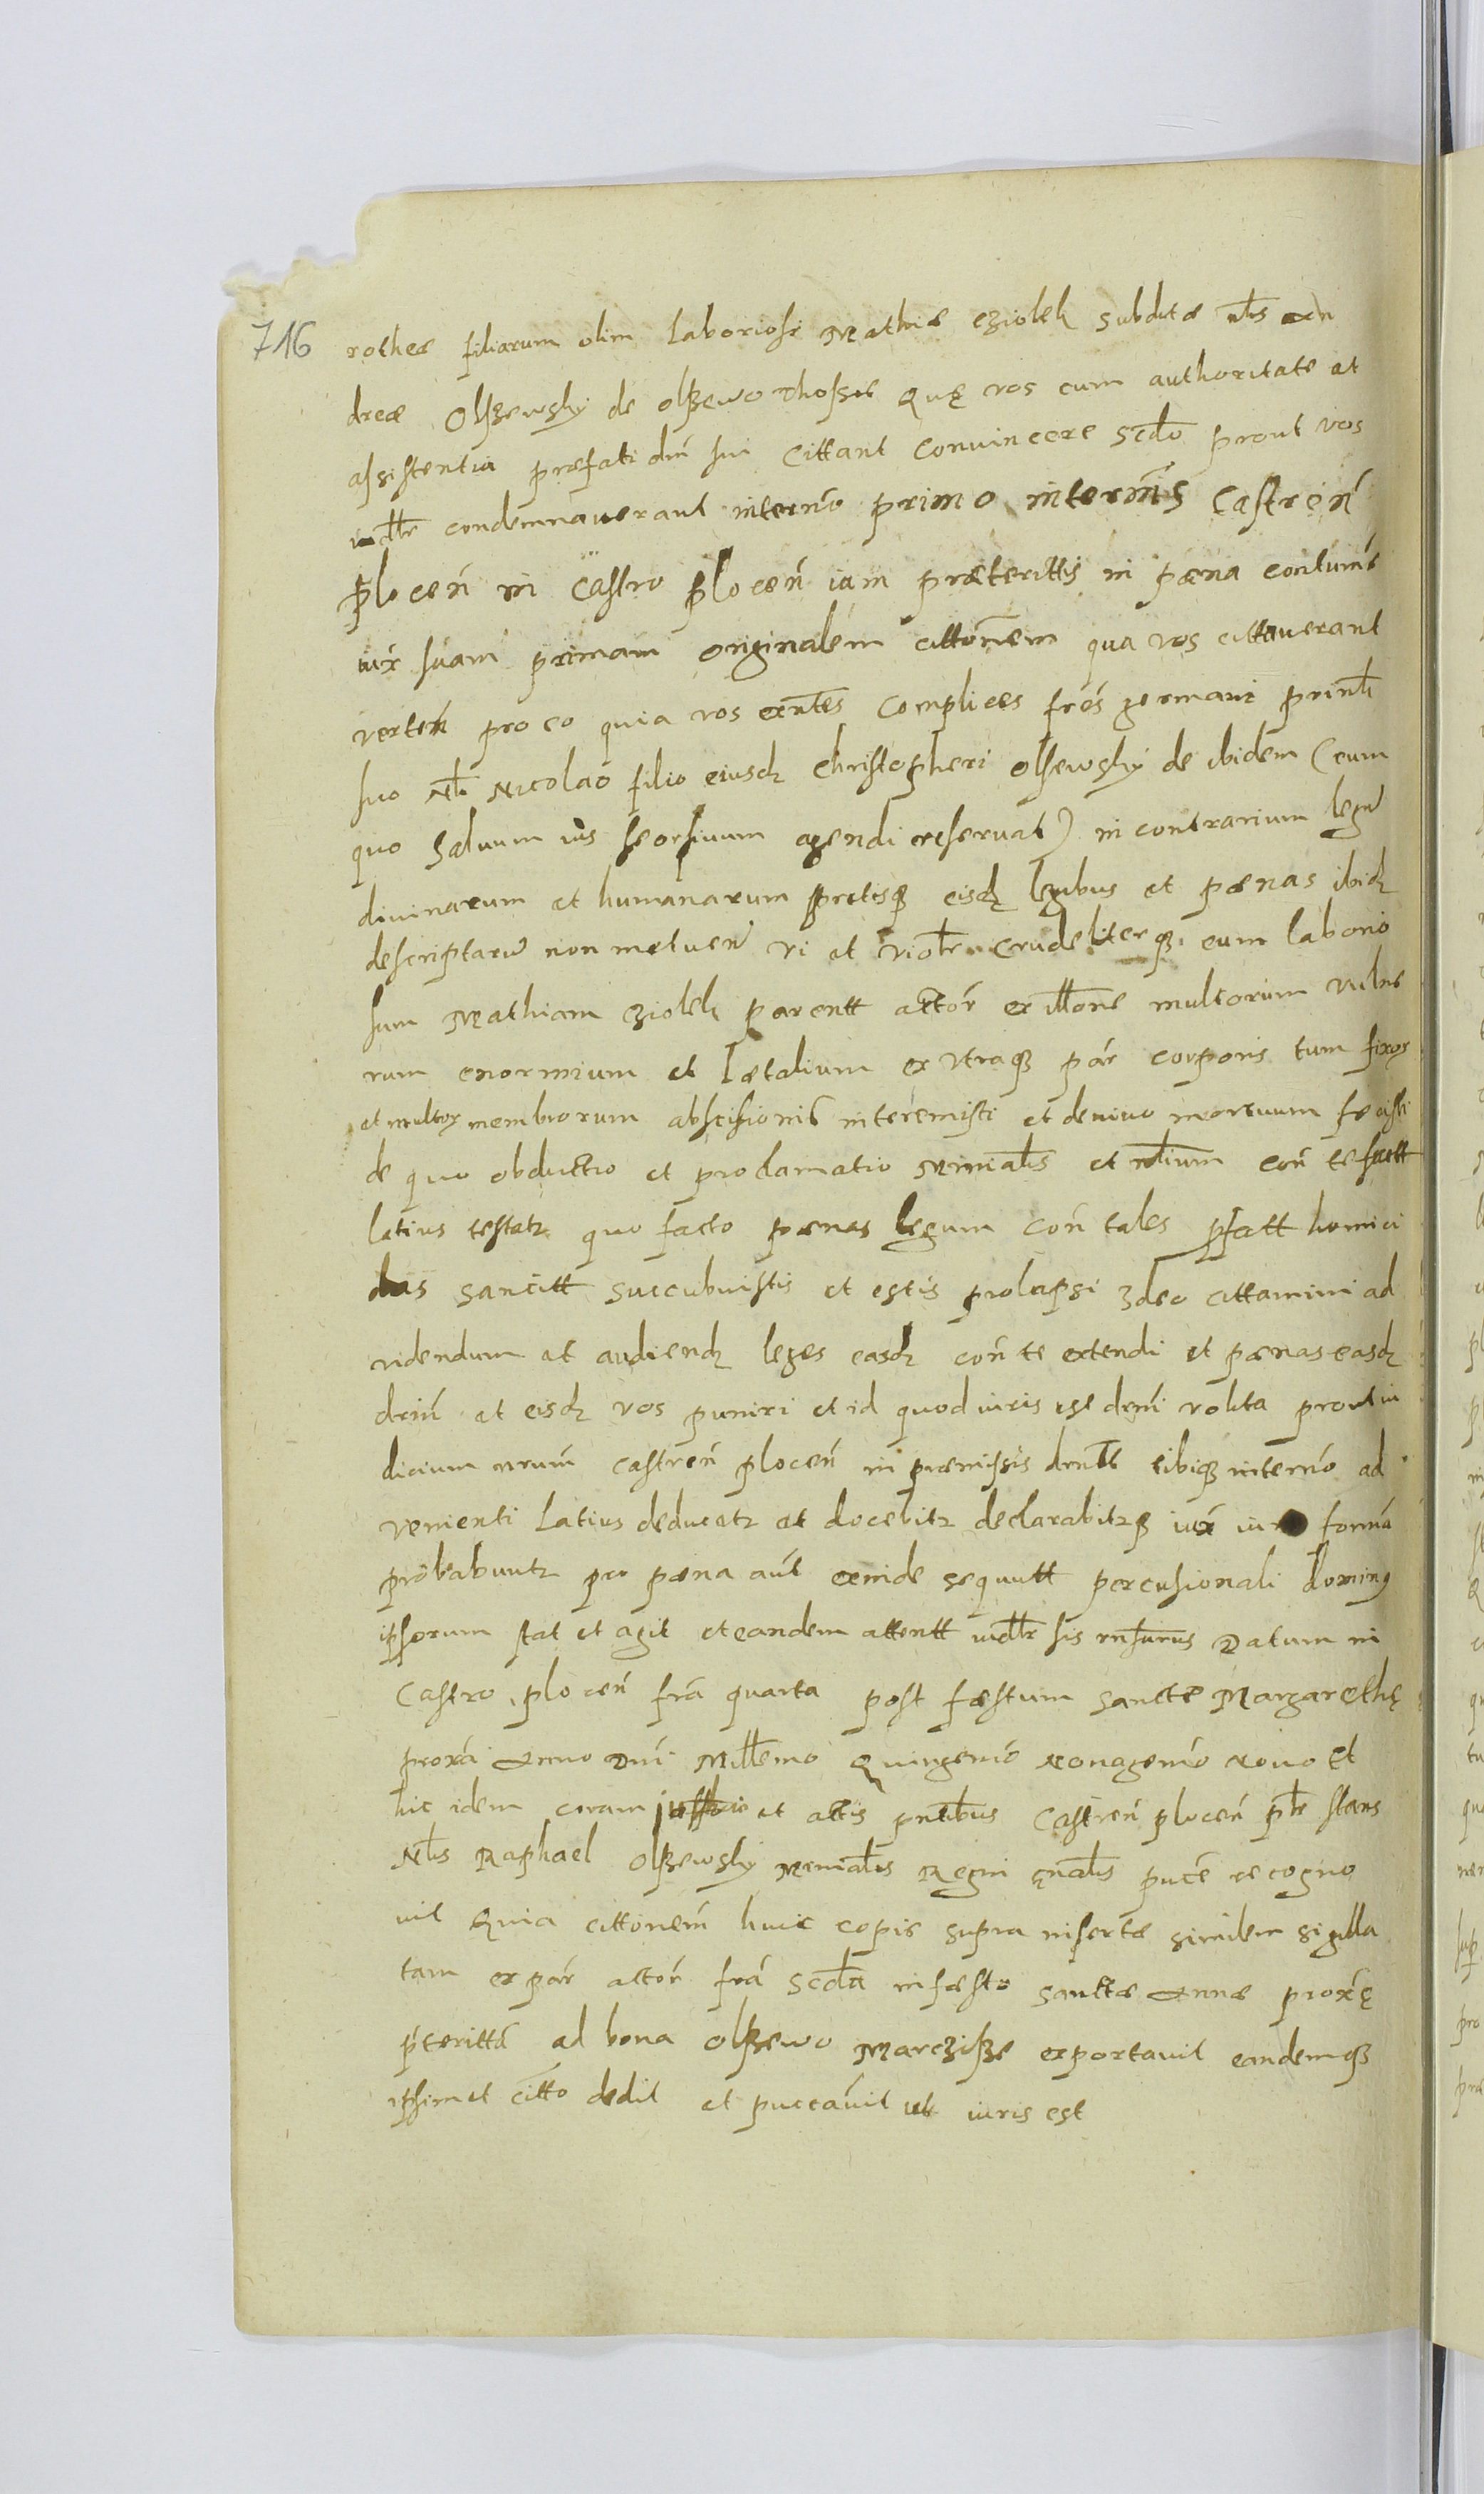 716
rotheæ filiarum olim Laboriosi Mathiæ cziolek subditæ nlis An
dreæ Olszewsky de olszewo Thossie Quę vos cum authoritate et
assistentia præfati dni sui Cittant Convincere Scdo prout vos
iudlr condemnaverant intermo primo intermis Castren
plocen in Castro plocen iam præterittis in pæna contume
iux suam primam originalem cittonem qua vos cittaverant
verten pro eo quia vos exntes Complices fres germani prinli
suo Nli Nicolao filio eiusdz Christopheri Olsewsky de ibidem (cum
quo Salvum ius seorsivum agendi reservat) in contrarium legu
divinarum et humanarum spretisqz eisdz legibus et pænas ibidz
descriptaru non metuen vi et violr crudeliterqz eum laborio
sum Mathiam cziolek parentt actor ex illone multorum vulne
rum enormium et Lætalium ex utraqz par corporis tum fixor
et multor membrorum abscisionis interemisti et devivo mortuum fecisti
de quo obductio et proclamatio Mnialis et nlium con te factt
latius testatr quo facto pænas legum con tales pfatt homici
das sancitt succubuistis et estis prolapsi Ideo cittamini ad
videndum et audiendz leges easdz con te extendi et pænas easdz
drin et eisdz vos puniri et id quod iuris est derni volita prout iu
dicium nrum castren plocen in præmissis drnlt tibiqz intermo ad
venienti Latius deducetr et docebitr declarabitrqz iux iur forma
probabuntr pro pæna aut exinde sequutt percusionali dominus
ipsorum stat et agit et eandem attentt iudlr sis rnsurus Datum in
Castro plocen fra quarta post fæstum sanctæ Margarethę
proxa Anno Dni Millemo Quingemo nonagemo nono Et
hic idem coram et actis pntibus Castren plocen plr stans
Nlis Raphael Olszewsky Menialis Regni gnalis puce recogno
vit Quia cittonem huic copie supra insertæ similem sigilla
tam ex par actor fra Scda in fæsto sanctæ Annæ proxę
pteritta ad bona olszewo Marczisze exportavit eandemqz
ipsimet citto dedit et puccavit ut iuris est